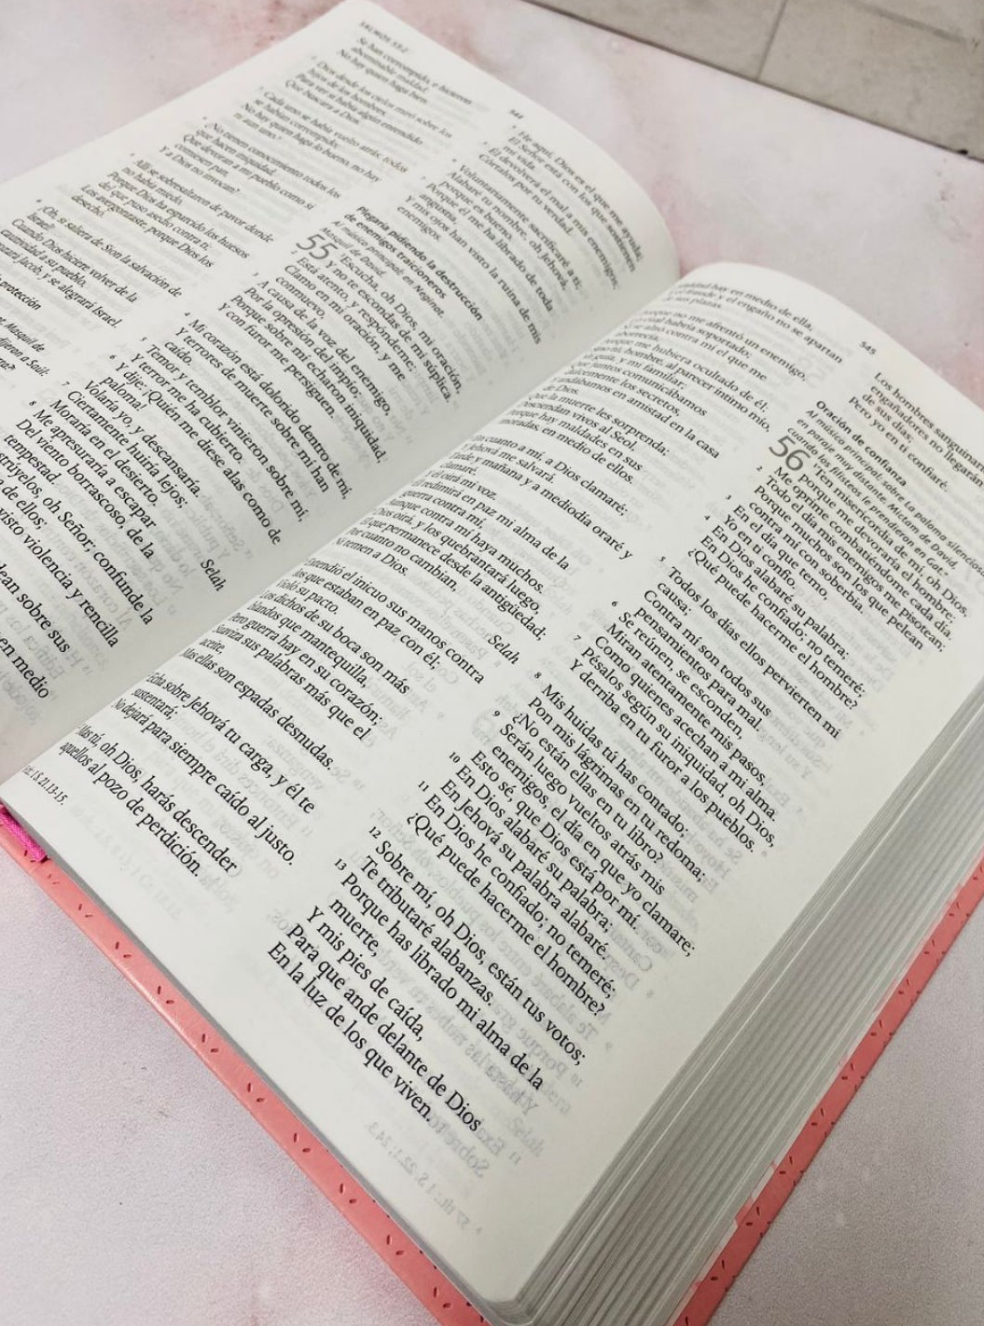 SALMOS 53.2
Se han corrompido, e hicieron
abominable maldad;
No hay quien haga bien.
2 Dios desde los cielos miró sobre los
hijos de los hombres,
Para ver si había algún entendido
Que buscara a Dios.
3 Cada uno se había vuelto atrás; todos
se habían corrompido;
No hay quien haga lo bueno, no hay
ni aun uno.
4 ¿No tienen conocimiento todos los
que hacen iniquidad,
Que devoran a mi pueblo como si
comiesen pan,
Y a Dios no invocan?
5 Allí se sobresaltaron de pavor donde
no había miedo,
Porque Dios ha esparcido los huesos
del que puso asedio contra ti;
Los avergonzaste, porque Dios los
desechó.
6 ¡Oh, si saliera de Sion la salvación de
Israel!
Cuando Dios hiciere volver de la
cautividad a su pueblo,
Jacob, y se alegrará Israel.
protección
Masquil de
dijeron a Saúl:
544
4 He aquí, Dios es el que me ayuda;
El Señor está con los que sostienen
mi vida.
5 Él devolverá el mal a mis enemigos;
Córtalos por tu verdad.
6 Voluntariamente sacrificaré a ti;
Alabaré tu nombre, oh Jehová,
porque es bueno.
7 Porque él me ha librado de toda
angustia,
Y mis ojos han visto la ruina de mis
enemigos.
Plegaria pidiendo la destrucción
de enemigos traicioneros
Al músico principal; en Neginot.
Masquil de David.
55 1 Escucha, oh Dios, mi oración,
Y no te escondas de mi súplica.
2 Está atento, y respóndeme;
Clamo en mi oración, y me
conmuevo,
3 A causa de la voz del enemigo,
Por la opresión del impío;
Porque sobre mí echaron iniquidad,
Y con furor me persiguen.
4 Mi corazón está dolorido dentro de mí,
Y terrores de muerte sobre mí han
caído.
5 Temor y temblor vinieron sobre mí,
Y terror me ha cubierto.
6 Y dije: ¡Quién me diese alas como de
paloma!
Volaría yo, y descansaría.
7 Ciertamente huiría lejos;
Moraría en el desierto. Selah
8 Me apresuraría a escapar
Del viento borrascoso, de la
tempestad.
oh Señor; confunde la
de ellos;
visto violencia y rencilla
sobre sus
en medio
maldad hay en medio de ella,
el fraude y el engaño no se apartan
de sus plazas.
no me afrentó un enemigo,
cual habría soportado;
se alzó contra mí el que me
aborrecía,
me hubiera ocultado de él;
hombre, al parecer íntimo mío,
guía, y mi familiar;
juntos comunicábamos
dulcemente los secretos,
andábamos en amistad en la casa
de Dios.
Que la muerte les sorprenda;
Desciendan vivos al Seol,
Porque hay maldades en sus
moradas, en medio de ellos.
En cuanto a mí, a Dios clamaré;
Jehová me salvará.
Tarde y mañana y a mediodía oraré y
clamaré,
él oirá mi voz.
redimirá en paz mi alma de la
guerra contra mí,
Aunque contra mí haya muchos.
Dios oirá, y los quebrantará luego,
que permanece desde la antigüedad;
Por cuanto no cambian,
Ni temen a Dios. Selah
Extendió el inicuo sus manos contra
los que estaban en paz con él;
Violó su pacto.
Los dichos de su boca son más
blandos que mantequilla,
Pero guerra hay en su corazón;
Suaviza sus palabras más que el
aceite,
Mas ellas son espadas desnudas.
Echa sobre Jehová tu carga, y él te
sustentará;
No dejará para siempre caído al justo.
Mas tú, oh Dios, harás descender
aquéllos al pozo de perdición.
1 S. 21.13-15.
545
Los hombres sanguinarios y
engañadores no llegarán
de sus días;
Pero yo en ti confiaré.
Oración de confianza
Al músico principal; sobre La paloma silenciosa
en paraje muy distante. Mictam de David,
cuando los filisteos le prendieron en Gat.
56 1 Ten misericordia de mí, oh Dios,
porque me devoraría el hombre;
Me oprime combatiéndome cada día.
2 Todo el día mis enemigos me pisotean;
Porque muchos son los que pelean
contra mí con soberbia.
3 En el día que temo,
Yo en ti confío.
4 En Dios alabaré su palabra;
En Dios he confiado; no temeré;
¿Qué puede hacerme el hombre?
5 Todos los días ellos pervierten mi
causa;
Contra mí son todos sus
pensamientos para mal.
6 Se reúnen, se esconden,
Miran atentamente mis pasos,
Como quienes acechan a mi alma.
7 Pésalos según su iniquidad, oh Dios,
Y derriba en tu furor a los pueblos.
8 Mis huidas tú has contado;
Pon mis lágrimas en tu redoma;
¿No están ellas en tu libro?
9 Serán luego vueltos atrás mis
enemigos, el día en que yo clamare;
Esto sé, que Dios está por mí.
10 En Dios alabaré su palabra;
En Jehová su palabra alabaré.
11 En Dios he confiado; no temeré;
¿Qué puede hacerme el hombre?
12 Sobre mí, oh Dios, están tus votos;
Te tributaré alabanzas.
13 Porque has librado mi alma de la
muerte,
Y mis pies de caída,
Para que ande delante de Dios
En la luz de los que viven.